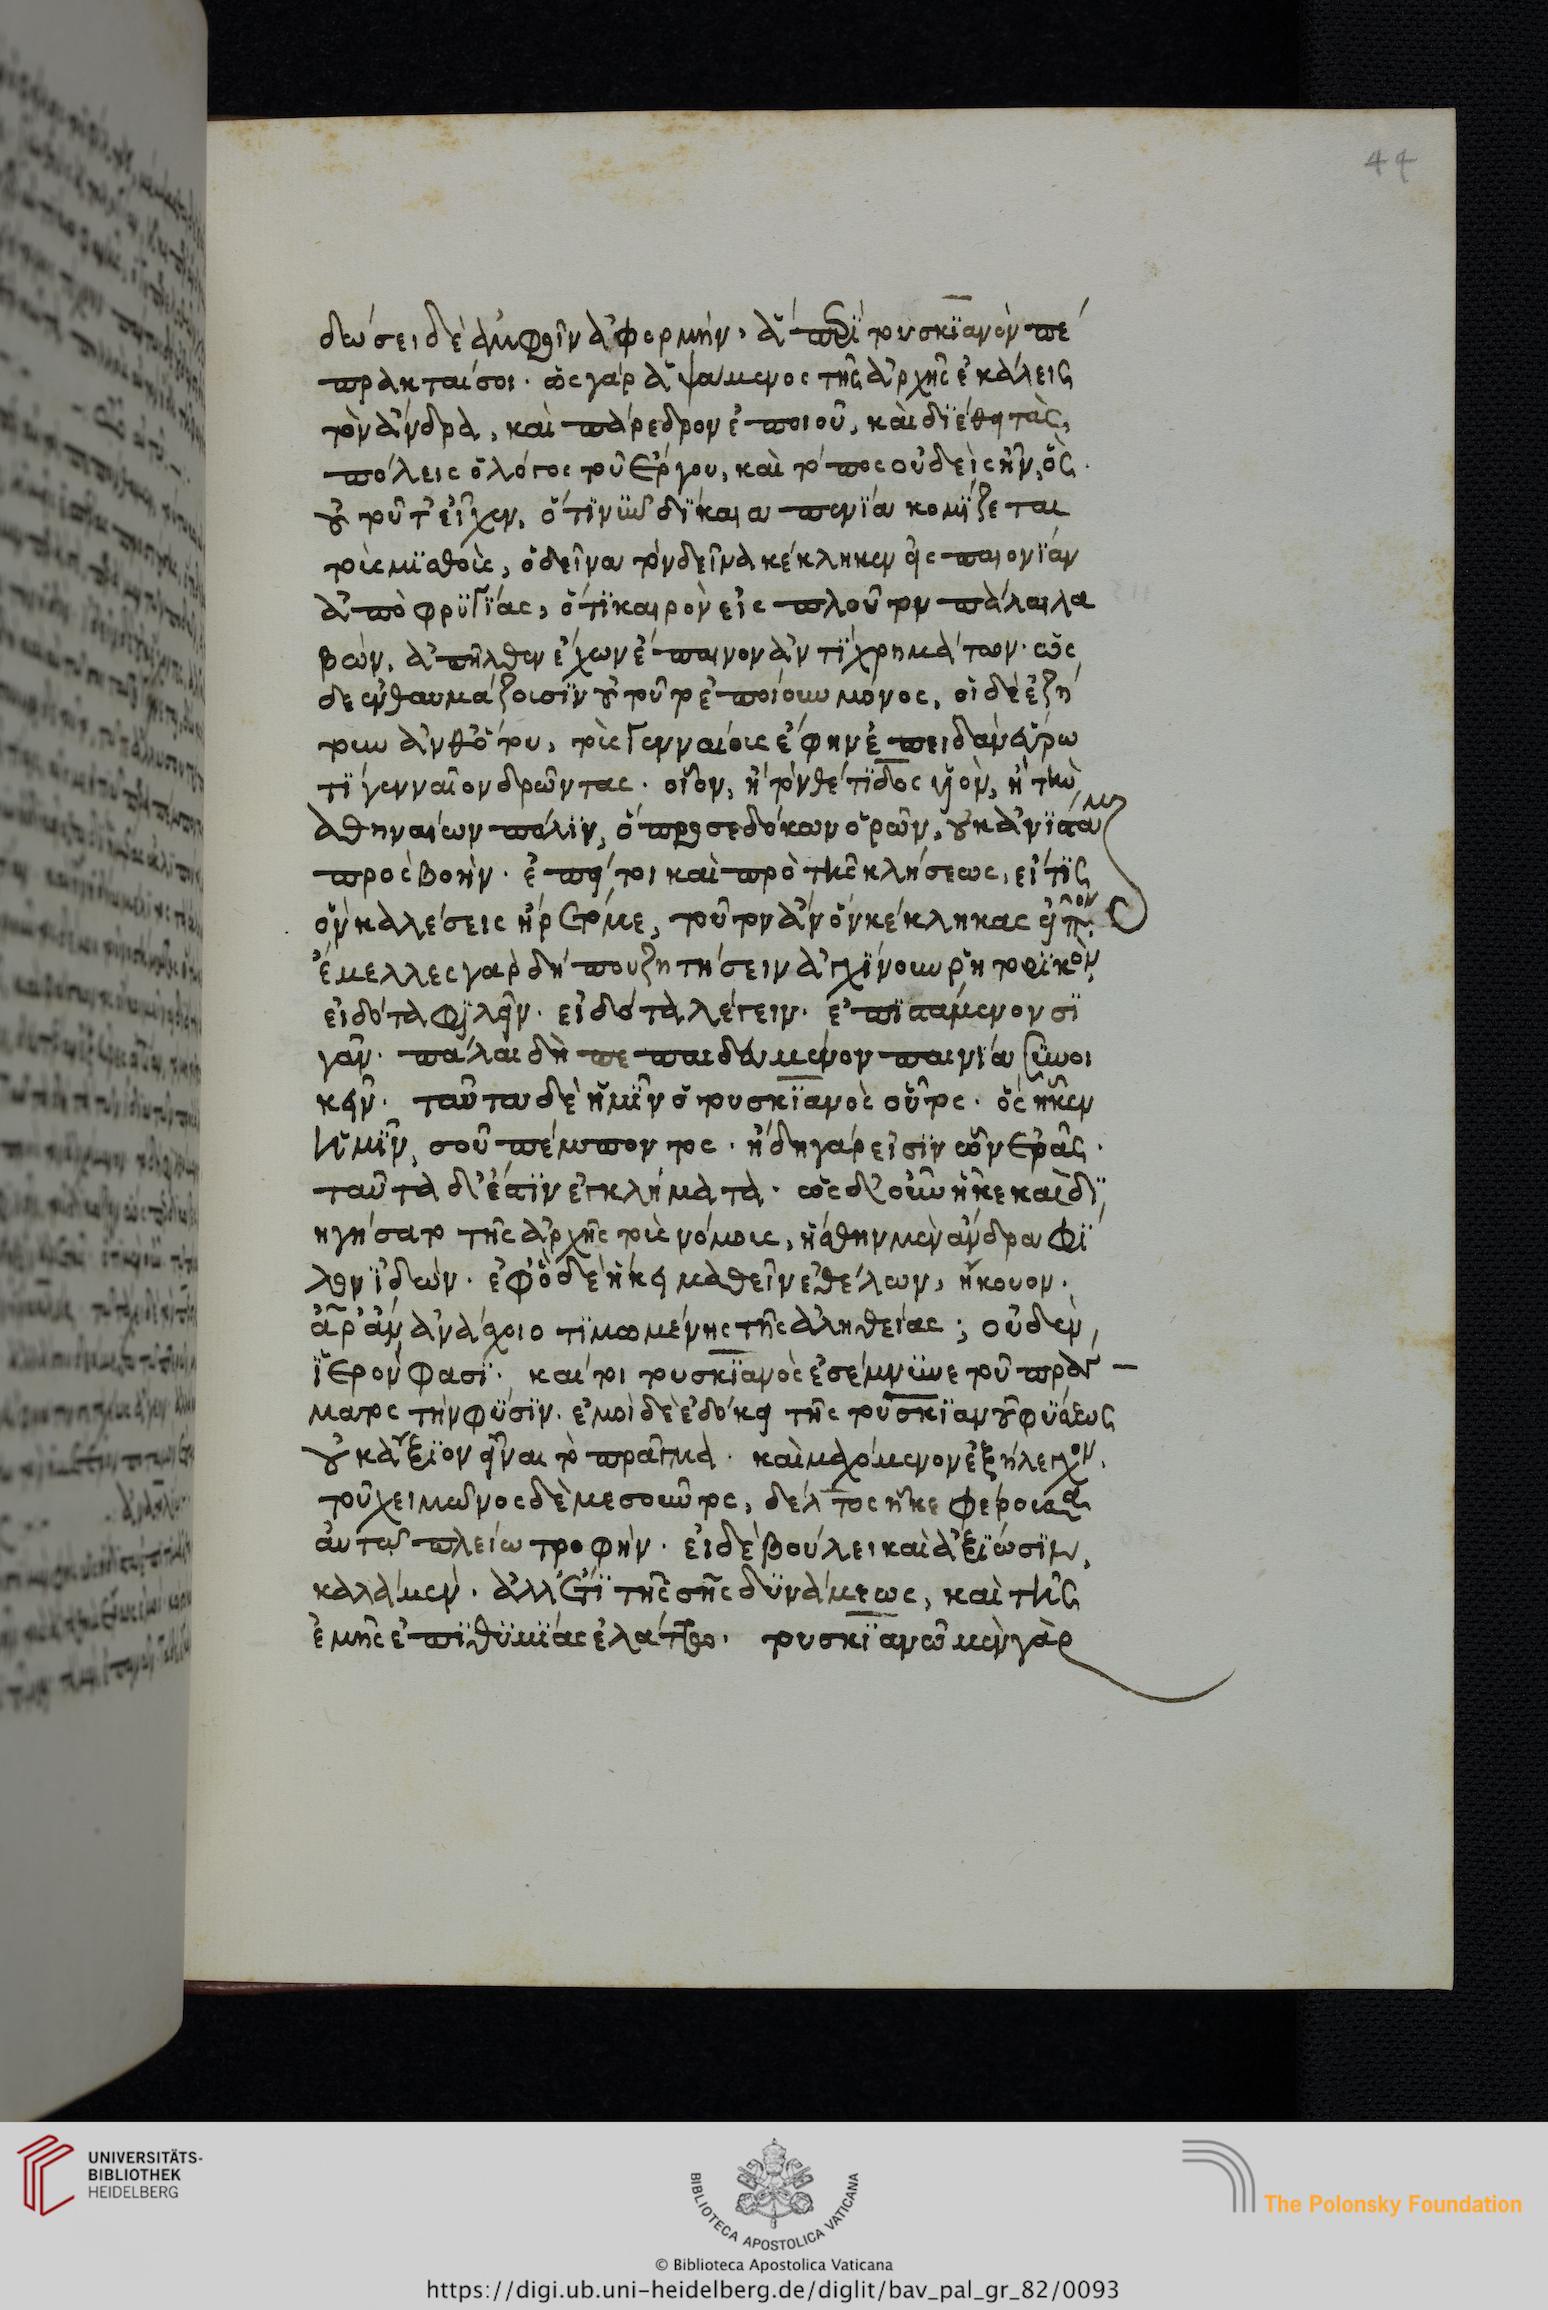 44
δώσει δὲ ἀμφοῖν ἀφορμὴν, ἃ περὶ τουσκιανὸν πέ
πρακταί σοι· ὡς γὰρ ἁψάμενος τῆς ἀρχῆς ἐκάλεις
τὸν ἄνδρα, καὶ πάρεδρον ἐποιοῦ, καὶ διέθει τὰς
πόλεις ὁ λόγος τοῦ ἔργου, καὶ τόπος οὐδεὶς ἦν, ὃς
οὐ τοῦτ' εἶχεν, ὅτι νῦν δίκαια πενία κομίζεται
τοὺς μισθοὺς, ὁ δεῖνα τὸν δεῖνα κέκληκεν εἰς παιονίαν
ἀπὸ φρυγίας, ὅτι καιρὸν εἰς πλοῦτον πάλαι λα
βὼν, ἀπῆλθεν ἔχων ἔπαινον ἀντὶ χρημάτων· ὡς
δὲ ἐν θαυμάζουσιν οὐ τοῦτο ἐποίουν μόνος, οἱ δὲ ἐζή
τουν ἀνθ' ὅτου, τοὺς γενναίους ἔφην ἐπειδὰν εὕρω
τὶ γενναῖον δρῶντας· οἷον, ἢ τὸν θέτιδος υἱὸν, ἢ τὴν
ἀθηναίων πόλιν, ὃ προσεδόκων ὁρῶν, οὐκ ἀνίσταμαι
πρὸς βοήν· ἐπεί τοι καὶ πρὸ τῆς κλήσεως, εἴ τις
ὃν καλέσεις ἤρετό με, τοῦτον ἂν ὃν κέκληκας εἶπον·
ἔμελλες γὰρ δή που ζητήσειν ἀγχίνουν ῥητορικὸν
εἰδότα φιλεῖν· εἰδότα λέγειν· ἐπιστάμενον σι
γᾶν· πάλαι δὴ πεπαιδευμένον πενία συνοι
κεῖν· ταῦτα δὲ ἡμῖν ὁ τουσκιανὸς οὗτος· ὃς ἧκεν
ἡμῖν, σοῦ πέμποντος· ἤδη γάρ εἰσιν ὧν ἐρᾷς·
ταῦτα δ' ἔστιν ἐγκλήματα· ὡς δ' οὖν ἧκε καὶ δι
ηγήσατο τῆς ἀρχῆς τοὺς νόμους, ἥσθην μὲν ἄνδρα φί
λον ἰδών· ἐφ' ὃ δὲ ἥκει μαθεῖν ἐθέλων, ἤκουον·
ἆρ' ἂν ἀνάσχοιο τιμωμένης τῆς ἀληθείας; οὐδὲν,
ἱερὸν φασί· καί τοι τουσκιανὸς ἐσέμνυνε τοῦ πράγ
ματος τὴν φύσιν· ἐμοὶ δὲ ἐδόκει τῆς τουσκιανοῦ φύσεως
οὐκ ἄξιον εἶναι τὸ πρᾶγμα· καὶ μαχόμενον ἐξήλεγχον·
τοῦ χειμῶνος δὲ μεσοῦντος, δέλτος ἧκε φέρουσα
αὐτῷ πλείω τροφήν· εἰ δὲ βούλει καὶ ἀξίωσιν,
καλῶμεν· ἀλλ' ἔτι τῆς σῆς δυνάμεως, καὶ τῆς
ἐμῆς ἐπιθυμίας ἐλάττω· τουσκιανῶ μὲν γὰρ
UNIVERSITÄTS-
BIBLIOTHEK
HEIDELBERG
BIBLIOTECA APOSTOLICA VATICANA
The Polonsky Foundation
© Biblioteca Apostolica Vaticana
https://digi.ub.uni-heidelberg.de/diglit/bav_pal_gr_82/0093